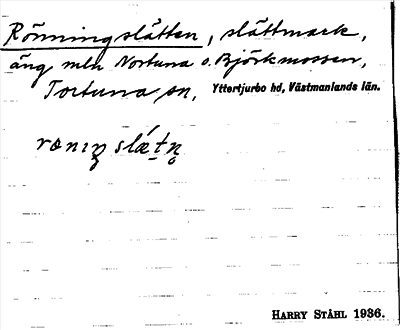 Rönningslätten, slåttmark,
äng mln Nortuna o. Björkmossen,
Tortuna sn, Yttertjurbo hd, Västmanlands län.
HARRY STÅHL 1936.